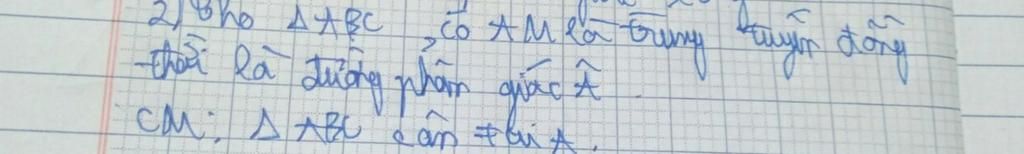 2) Cho Δ ABC, có AM là trung tuyến đồng
thời là đường phân giác Â
CM: Δ ABC cân tại A.